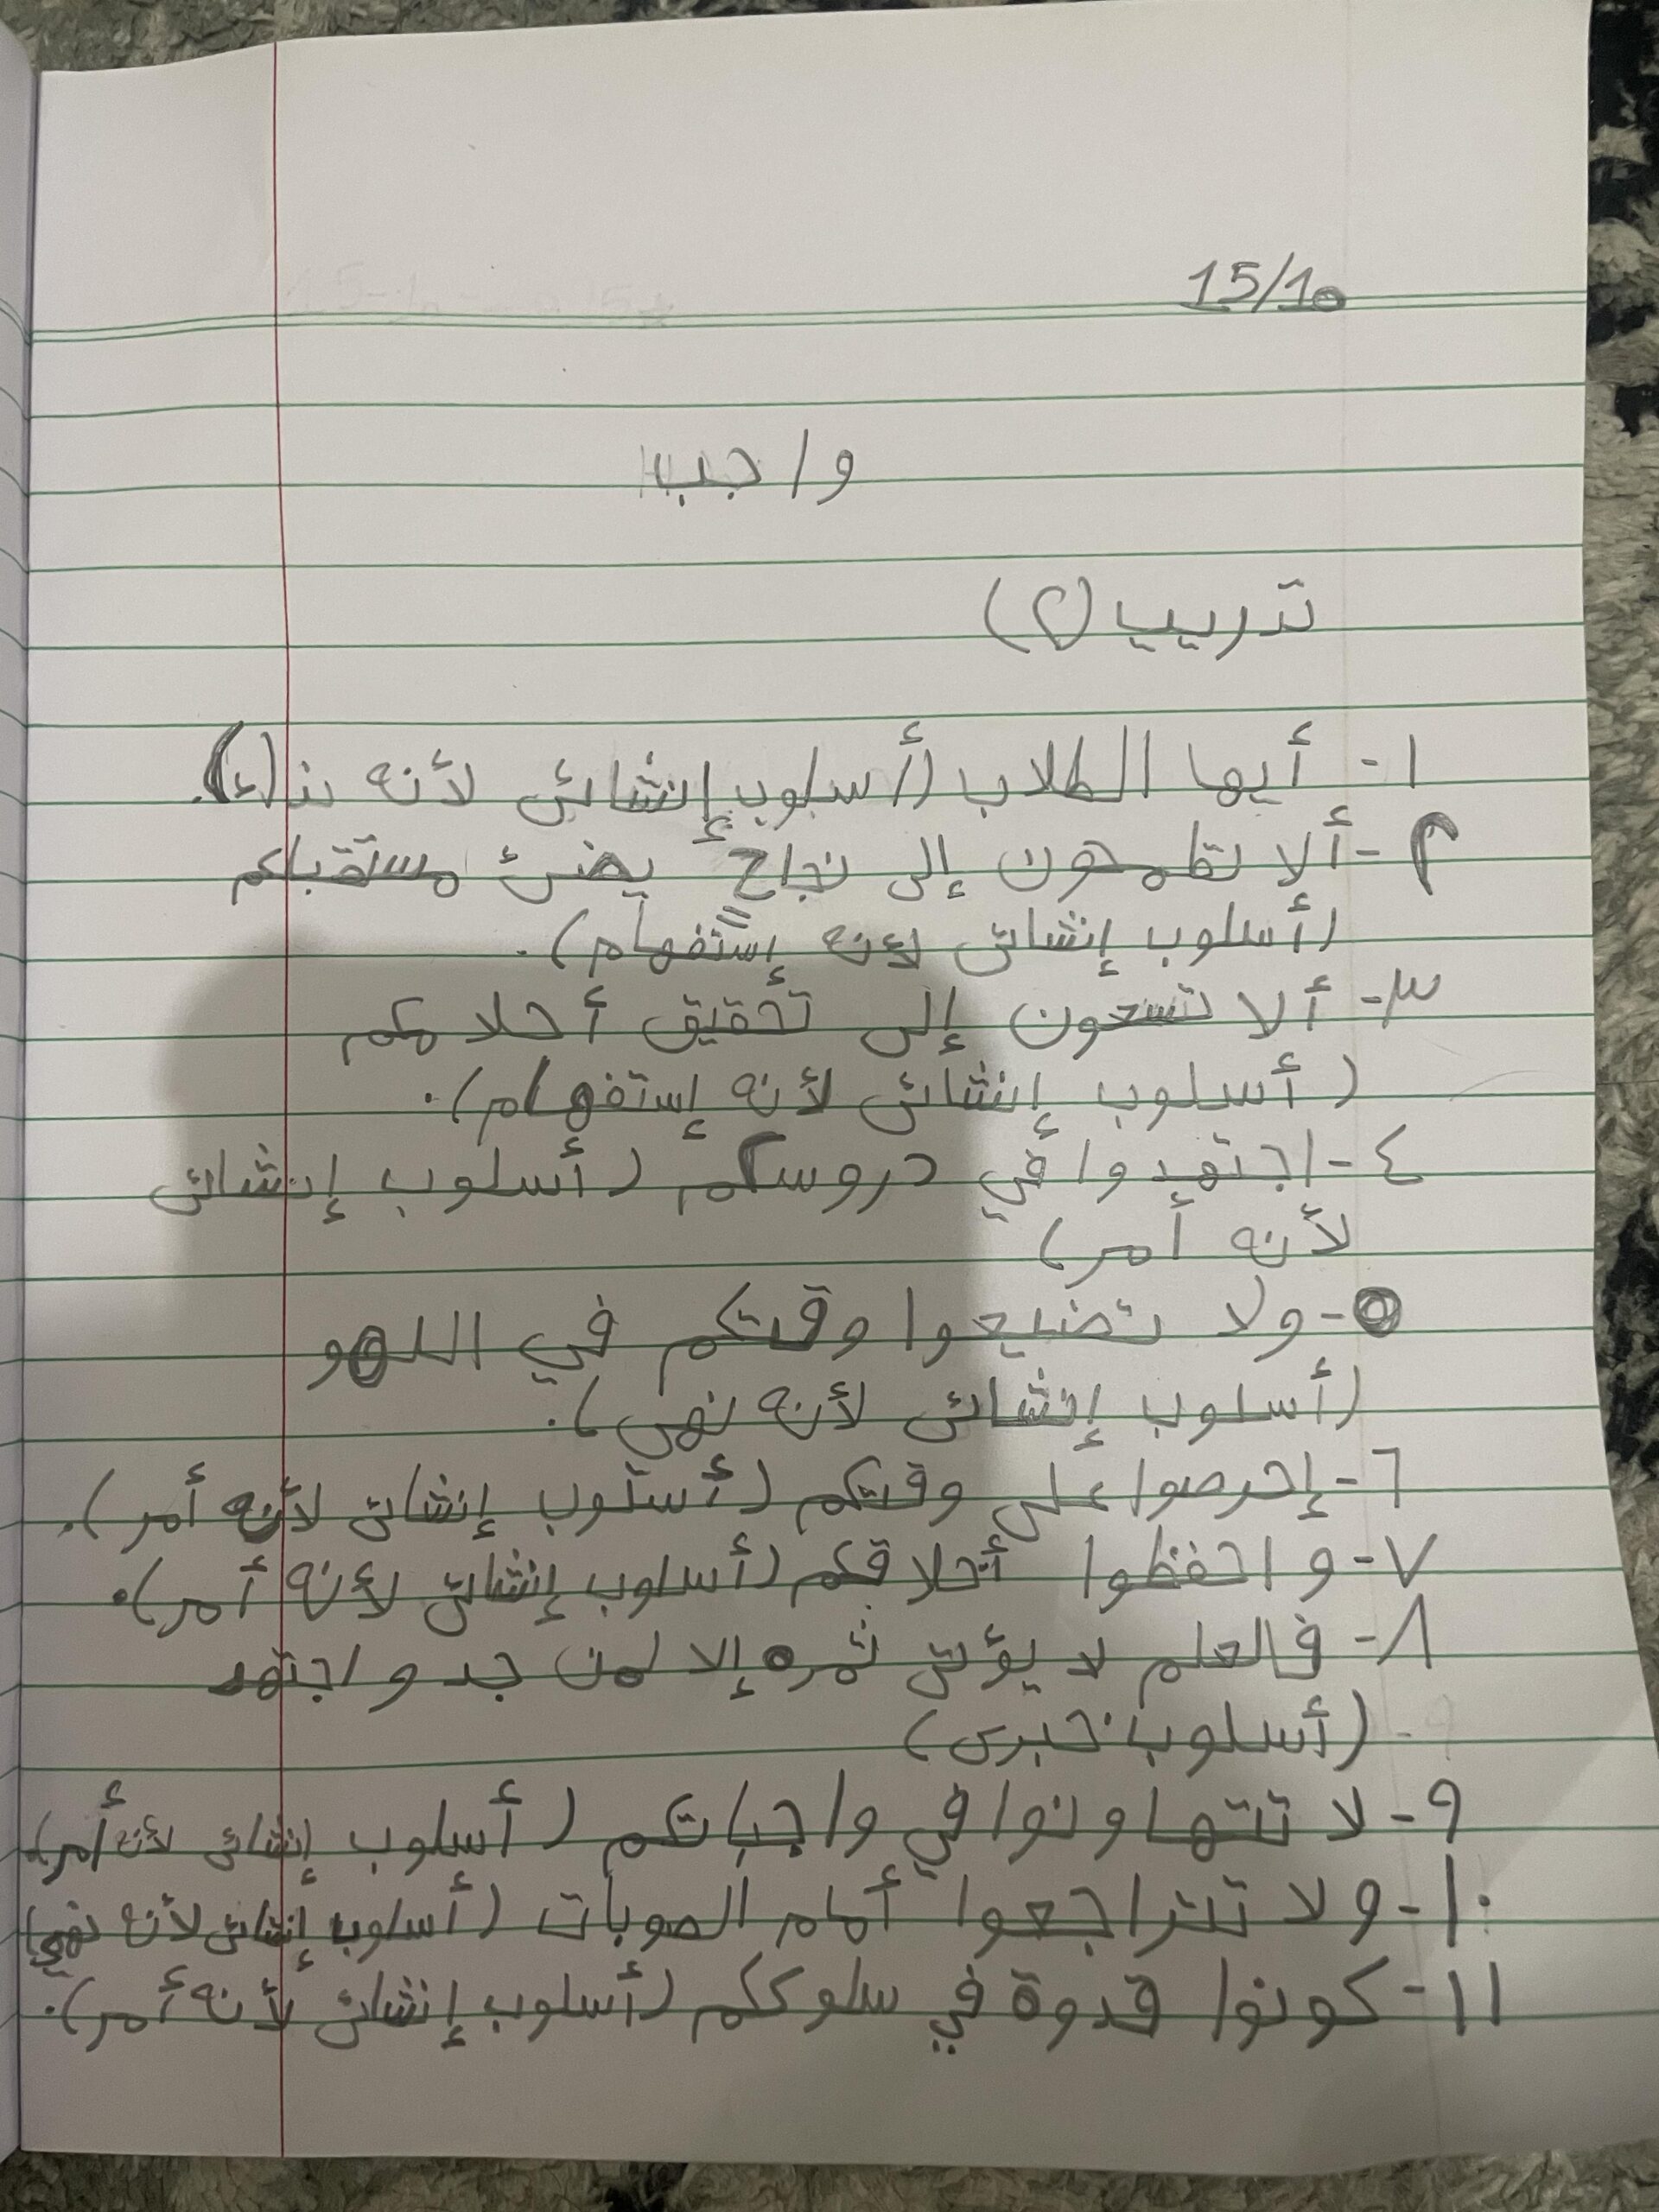 15/10
واجب
تدريب (٢)
١- أيها الطلاب (أسلوب إنشائى لأنه نداء).
٢- ألا تطمحون إلى نجاح يضئ مستقبلكم
(أسلوب إنشائى لأنه إستفهام).
٣- ألا تسعون إلى تحقيق أحلامكم
(أسلوب إنشائى لأنه إستفهام).
٤- اجتهدوا في دروسكم (أسلوب إنشائى
لأنه أمر)
٥- ولا تضيعوا وقتكم في اللهو
(أسلوب إنشائى لأنه نهى).
٦- إحرصوا على وقتكم (أسلوب إنشائى لأنه أمر).
٧- واحفظوا أخلاقكم (أسلوب إنشائى لأنه أمر).
٨- فالعلم لا يؤتى ثمره إلا لمن جد واجتهد
(أسلوب خبرى)
٩- لا تتهاونوا في واجباتكم (أسلوب إنشائى لأنه أمر).
١٠- ولا تتراجعوا أمام الصوبات (أسلوب إنشائى لأنه نهي)
١١- كونوا قدوة في سلوككم (أسلوب إنشائى لأنه أمر).